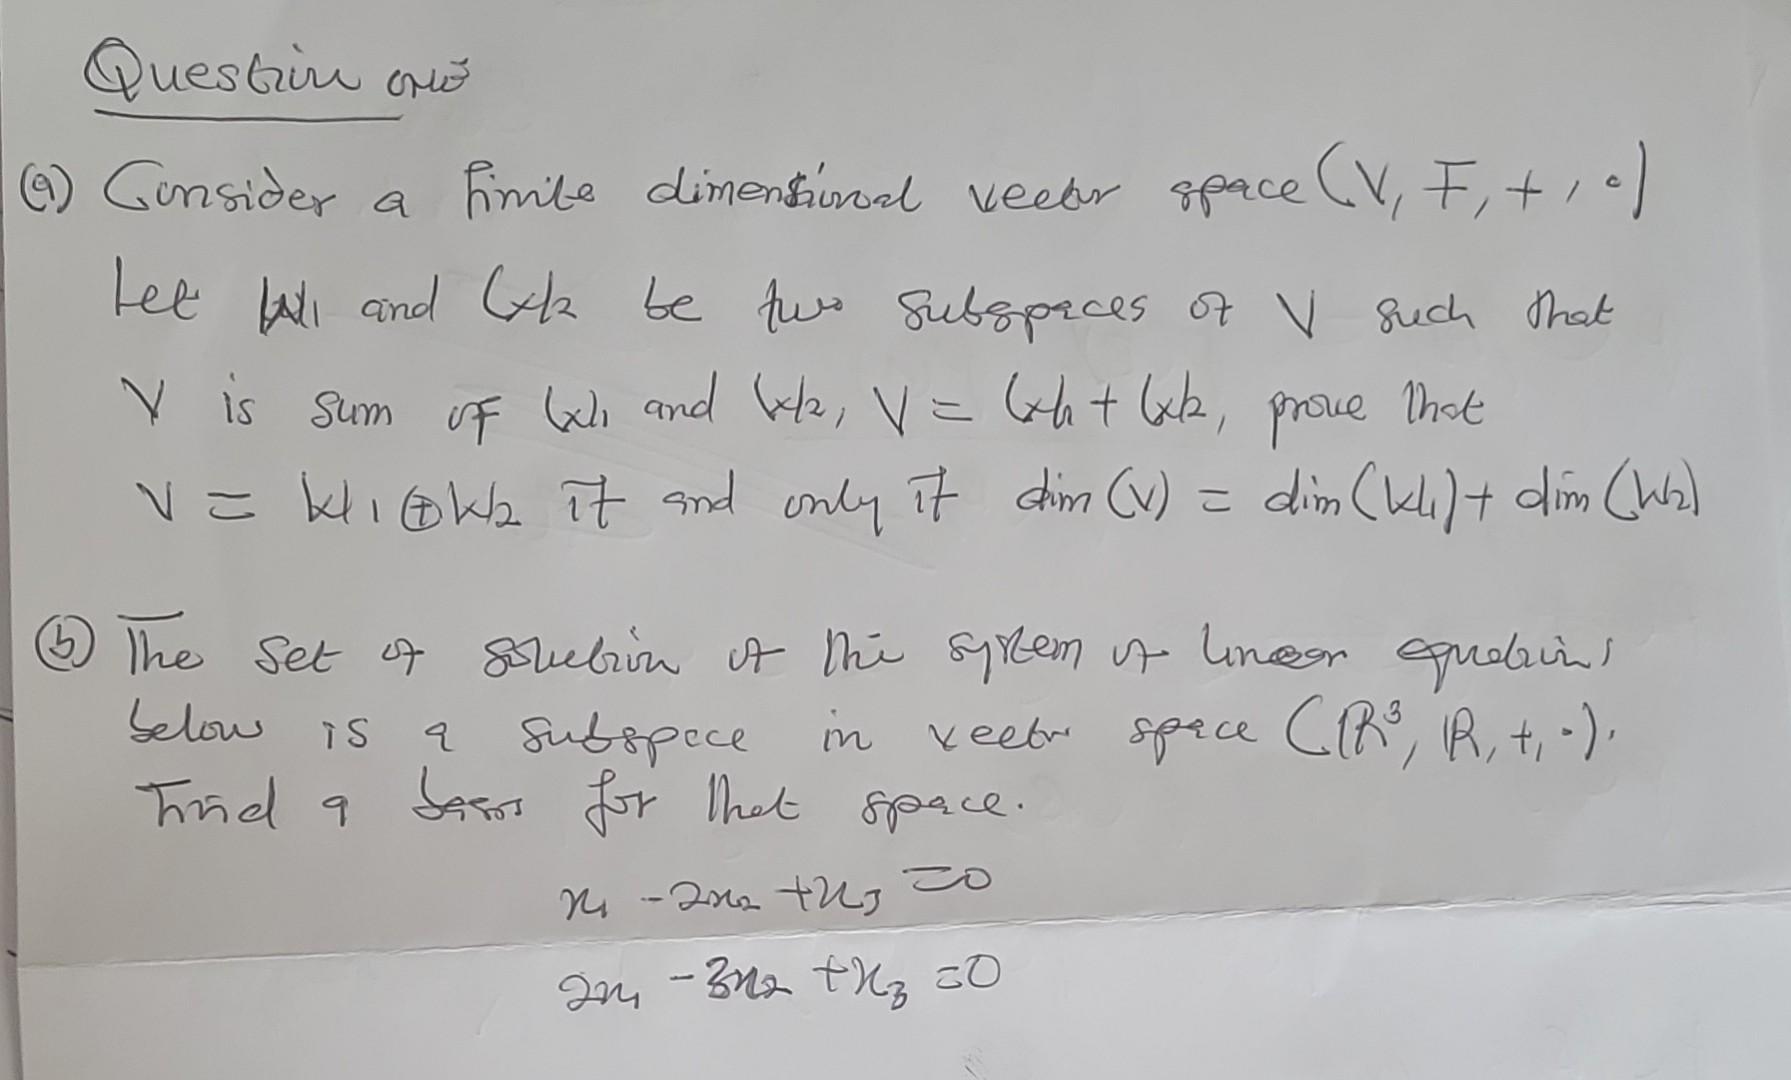 Question one
(a) Consider a finite dimensional vector space (V, F, +, ·)
Let W1 and W2 be two subspaces of V such that
V is sum of W1 and W2, V = W1 + W2, prove that
V = W1 ⊕ W2 if and only if dim (V) = dim (W1) + dim (W2)
(b) The set of solution of the system of linear equations
below is a subspace in vector space (ℝ³, ℝ, +, ·).
Find a basis for that space.
x₁ - 2x₂ + x₃ = 0
2x₁ - 3x₂ + x₃ = 0